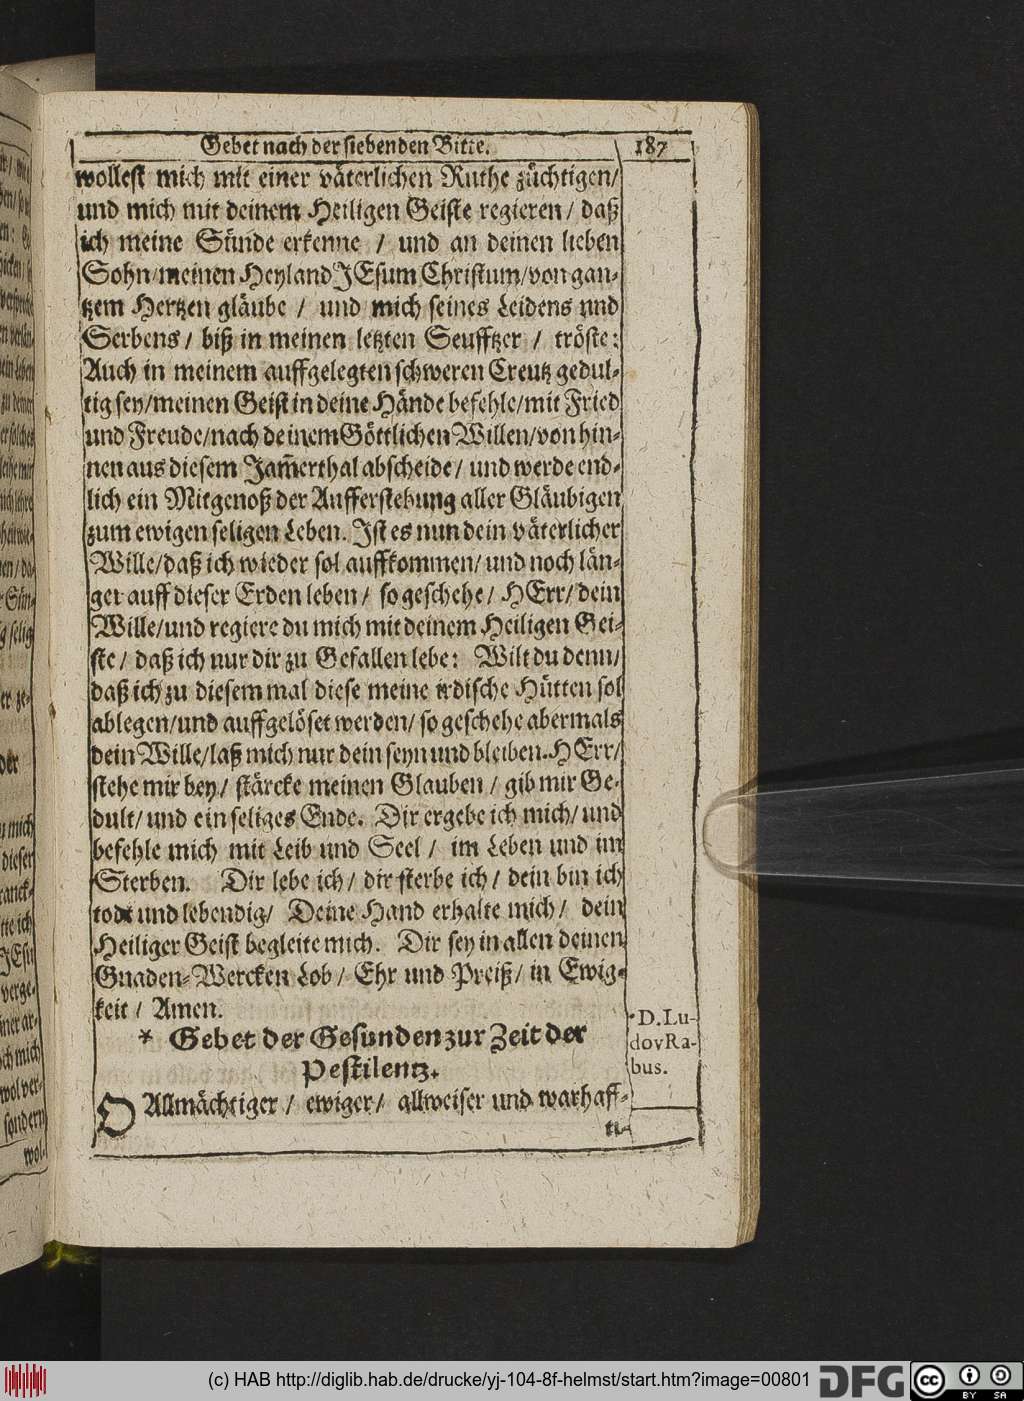 Gebet nach der siebenden Bitte. 187
wollest mich mit einer väterlichen Ruthe züchtigen/
und mich mit deinem Heiligen Geiste regieren / daß
ich meine Sünde erkenne / und an deinen lieben
Sohn/meinen Heyland JEsum Christum/von gan-
tzem Hertzen gläube / und mich seines Leidens und
Serbens / biß in meinen letzten Seufftzer / tröste:
Auch in meinem auffgelegten schweren Creutz gedul-
tig sey/meinen Geist in deine Hände befehle/mit Fried
und Freude/nach deinem Göttlichen Willen/von hin-
nen aus diesem Jam̃erthal abscheide / und werde end-
lich ein Mitgenoß der Aufferstehung aller Gläubigen
zum ewigen seligen Leben. Ist es nun dein väterlicher
Wille/daß ich wieder sol auffkommen/ und noch län-
ger auff dieser Erden leben / so geschehe / HErr/ dein
Wille/und regiere du mich mit deinem Heiligen Gei-
ste / daß ich nur dir zu Gefallen lebe: Wilt du denn/
daß ich zu diesem mal diese meine irdische Hütten sol
ablegen/und auffgelöset werden/ so geschehe abermals
dein Wille/laß mich nur dein seyn und bleiben. HErr/
stehe mir bey / stärcke meinen Glauben / gib mir Ge-
dult/ und ein seliges Ende. Dir ergebe ich mich/ und
befehle mich mit Leib und Seel / im Leben und im
Sterben. Dir lebe ich / dir sterbe ich / dein bin ich
todt und lebendig/ Deine Hand erhalte mich / dein
Heiliger Geist begleite mich. Dir sey in allen deinen
Gnaden-Wercken Lob / Ehr und Preiß/ in Ewig-
keit / Amen.
* Gebet der Gesunden zur Zeit der
Pestilentz.
*D. Lu-
dov Ra-
bus.
O Allmächtiger / ewiger / allweiser und warhaff-
ti-
(c) HAB http://diglib.hab.de/drucke/yj-104-8f-helmst/start.htm?image=00801
DFG
cc BY SA